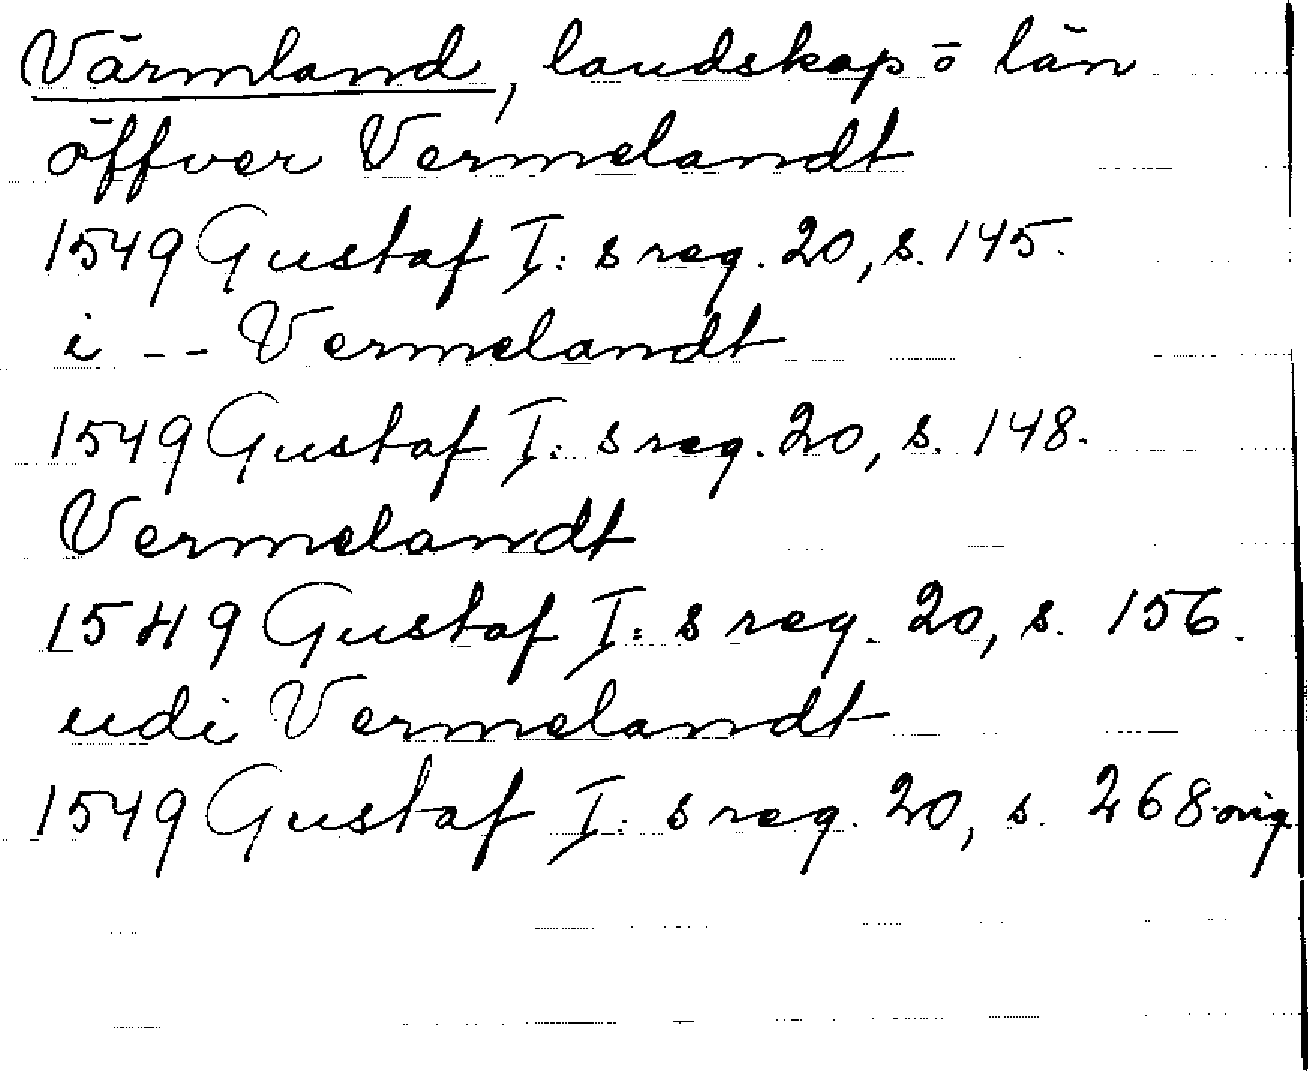 Värmland, landskap ō län
öffver Vermelandt
1549 Gustaf I:s reg. 20, s. 145.
i -- Vermelandt
1549 Gustaf I:s reg. 20, s. 148.
Vermelandt
1549 Gustaf I:s reg. 20, s. 156.
udi Vermelandt
1549 Gustaf I:s reg. 20, s. 268 orig.